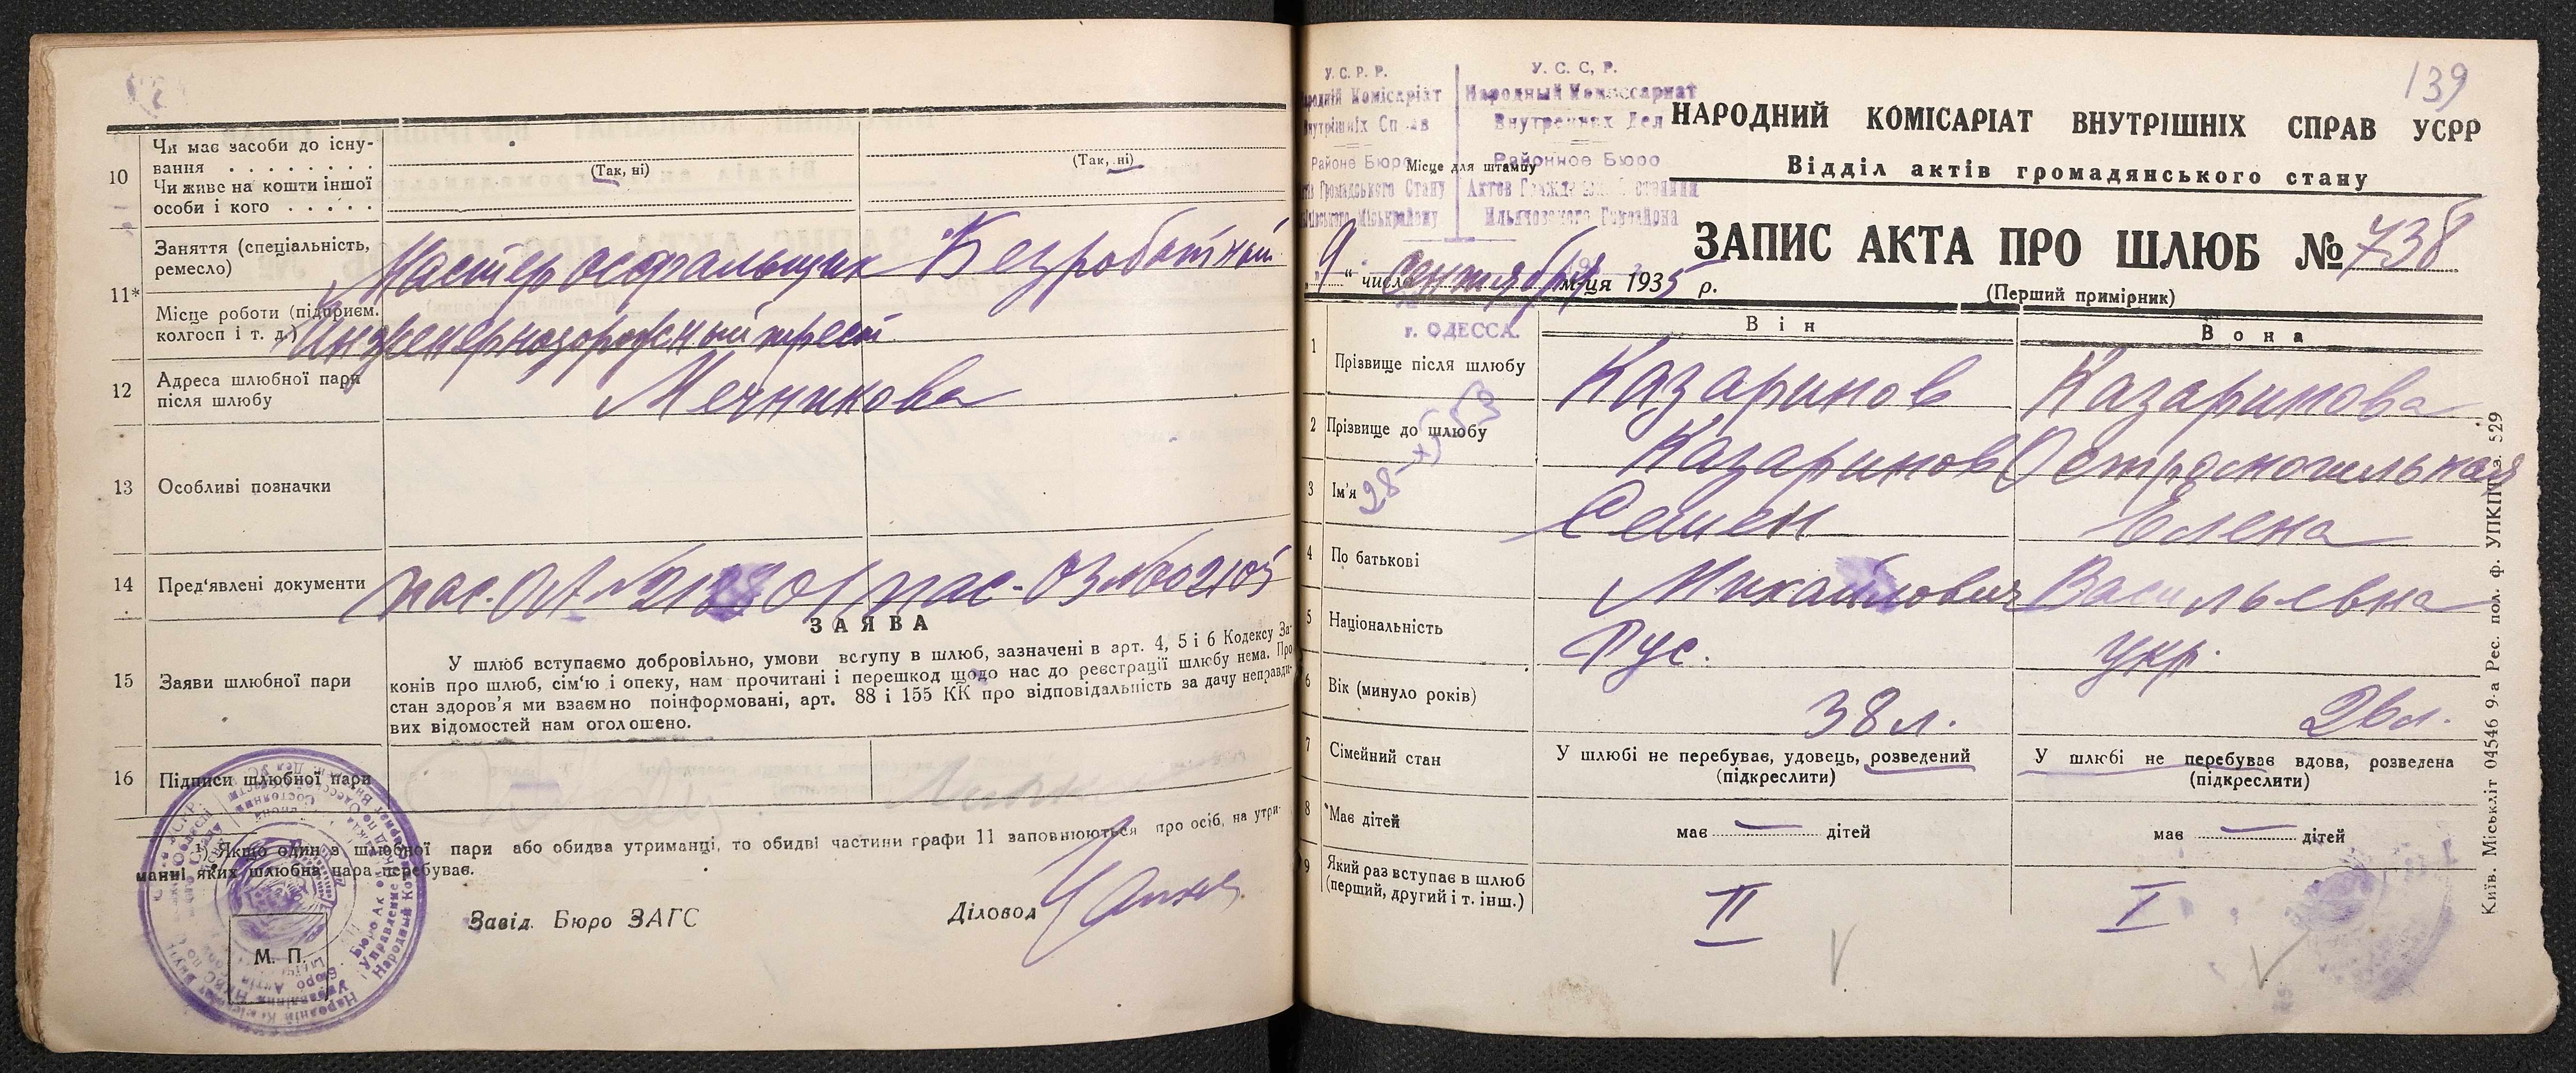 10
Чи має засоби до існу-
вання . . . . . . .
Чи живе на кошти іншої
особи і кого . . . . .
(Так, ні)
(Так, ні)
11*
Заняття (спеціальність,
ремесло)
Мастер асфальщик
Безработный
Місце роботи (підприєм.
колгосп і т. д.)
Инженернодорожный трест
12
Адреса шлюбної пари
після шлюбу
Мечникова
13
Особливі позначки
14
Пред'явлені документи
пас.
пас.
ЗАЯВА
15
Заяви шлюбної пари
У шлюб вступаємо добровільно, умови вступу в шлюб, зазначені в арт. 4, 5 і 6 Кодексу За-
конів про шлюб, сім'ю і опеку, нам прочитані і перешкод щодо нас до реєстрації шлюбу нема. Про
стан здоров'я ми взаємно поінформовані, арт. 88 і 155 КК про відповідальність за дачу неправди-
вих відомостей нам оголошено.
16
Підписи шлюбної пари
¹) Якщо один з шлюбної пари або обидва утриманці, то обидві частини графи 11 заповнюються про осіб, на утри-
манні яких шлюбна пара перебуває.
Завід. Бюро ЗАГС
Діловод
М. П.
139
У. С. Р. Р.
Народній Комісаріят
Внутрішніх Справ
Районе Бюро
Громадського Стану
У. С. С. Р.
Народный Комиссариат
Внутренних Дел
Районное Бюро
Актов Гражд. состояния
Ильичовского Горрайона
Місце для штампу
г. ОДЕССА.
НАРОДНИЙ КОМІСАРІАТ ВНУТРІШНІХ СПРАВ УСРР
Відділ актів громадянського стану
ЗАПИС АКТА ПРО ШЛЮБ № 738
(Перший примірник)
„9“ числа сентября м-ця 1935 р.
Він
Вона
1
Прізвище після шлюбу
Казаринов
Казаринова
2
Прізвище до шлюбу
Казаринов
Остромогильная
3
Ім'я
Семен
Елена
4
По батькові
Михайлович
Васильевна
5
Національність
Рус.
укр.
6
Вік (минуло років)
38 л.
26 л.
7
Сімейний стан
У шлюбі не перебуває, удовець, розведений
(підкреслити)
У шлюбі не перебуває вдова, розведена
(підкреслити)
8
Має дітей
має — дітей
має — дітей
9
Який раз вступає в шлюб
(перший, другий і т. інш.)
II
I
Київ. Міськліт 04546 9-а Рес. пол. ф. УПКПП з. 529